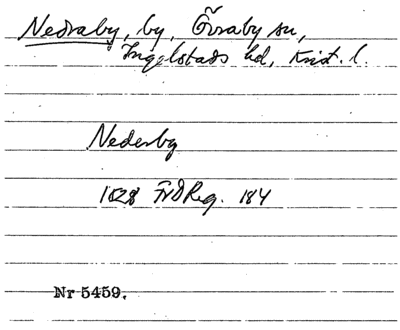 Nedraby, by, Övraby sn,
Ingelstads hd, Krist. l.
Nederby
1628 FrDReg. 184
Nr 5459.